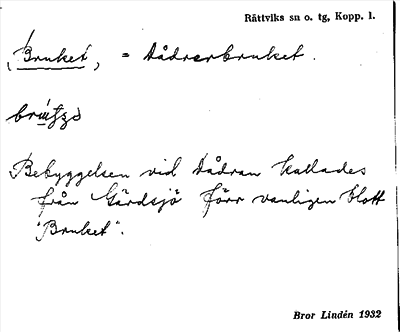 Rättviks sn o. tg, Kopp. l.
(Bruket), = Dådranbruket.
Bebyggelsen vid Dådran kallades
från Gärdsjö förr vanligen blott
"Bruket".
Bror Lindén 1932